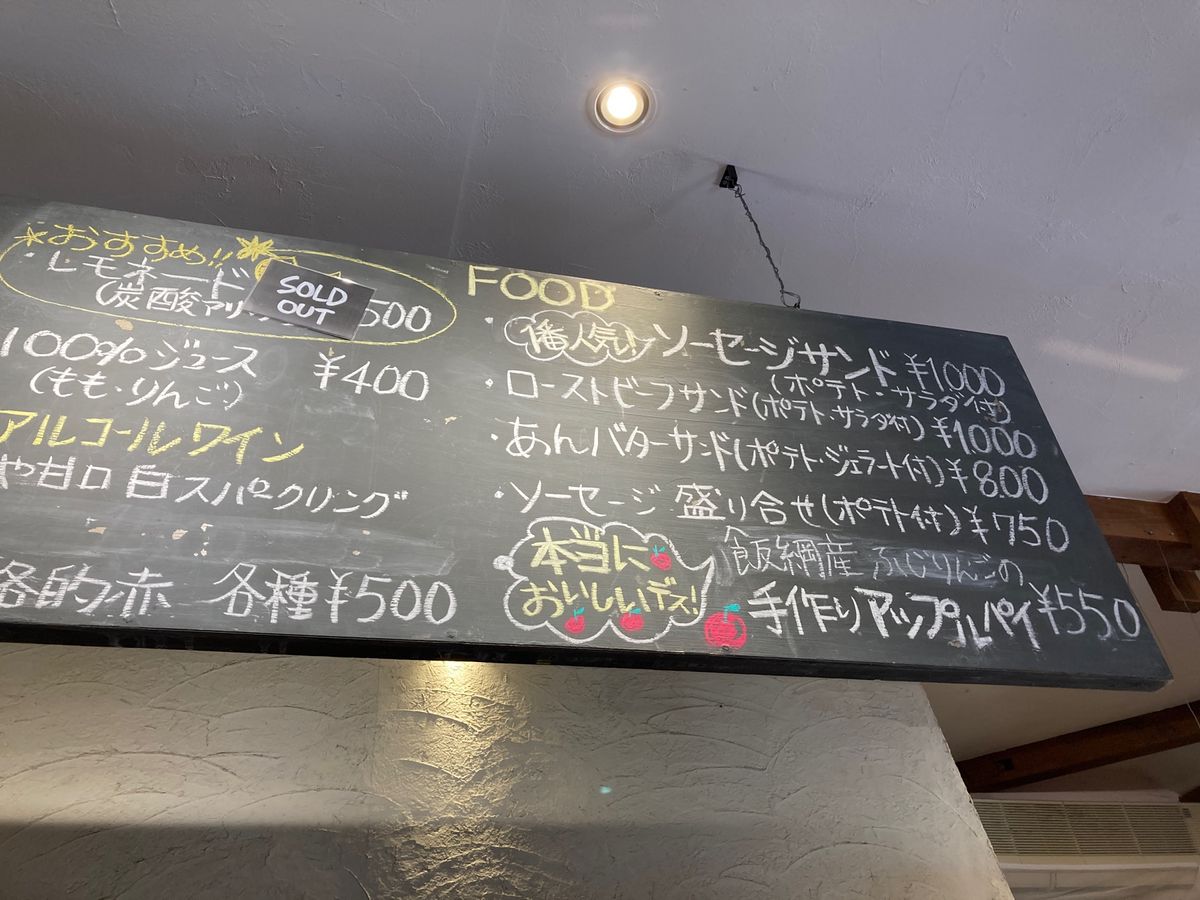 おすすめ!!
・レモネード
SOLD OUT
(炭酸アリ
500
100%ジュース ¥400
(もも・りんご)
アルコールワイン
や甘口 白スパークリング
各種¥500
FOOD
・1番人気! ソーセージサンド ¥1000
(ポテト・サラダ付)
・ローストビーフサンド(ポテト・サラダ付)¥1000
・あんバターサンド(ポテト・ジェラート付)¥800
・ソーセージ盛り合せ(ポテト付)¥750
本当に
おいしいデス!
飯綱産 ふじりんごの
手作りアップルパイ¥550